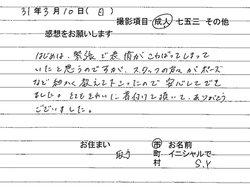 31年3月10日(日)
撮影項目 成人 七五三 その他
感想をお願いします
はじめは、緊張で表情がこわばってしまって
いたと思うのですが、スタッフの方々がポーズ
など細かく教えて下さったので安心してでき
ました。とてもきれいに着付けて頂いて、ありがとう
ございました。
お住まい 市 お名前
町 イニシャルで
村 S.Y